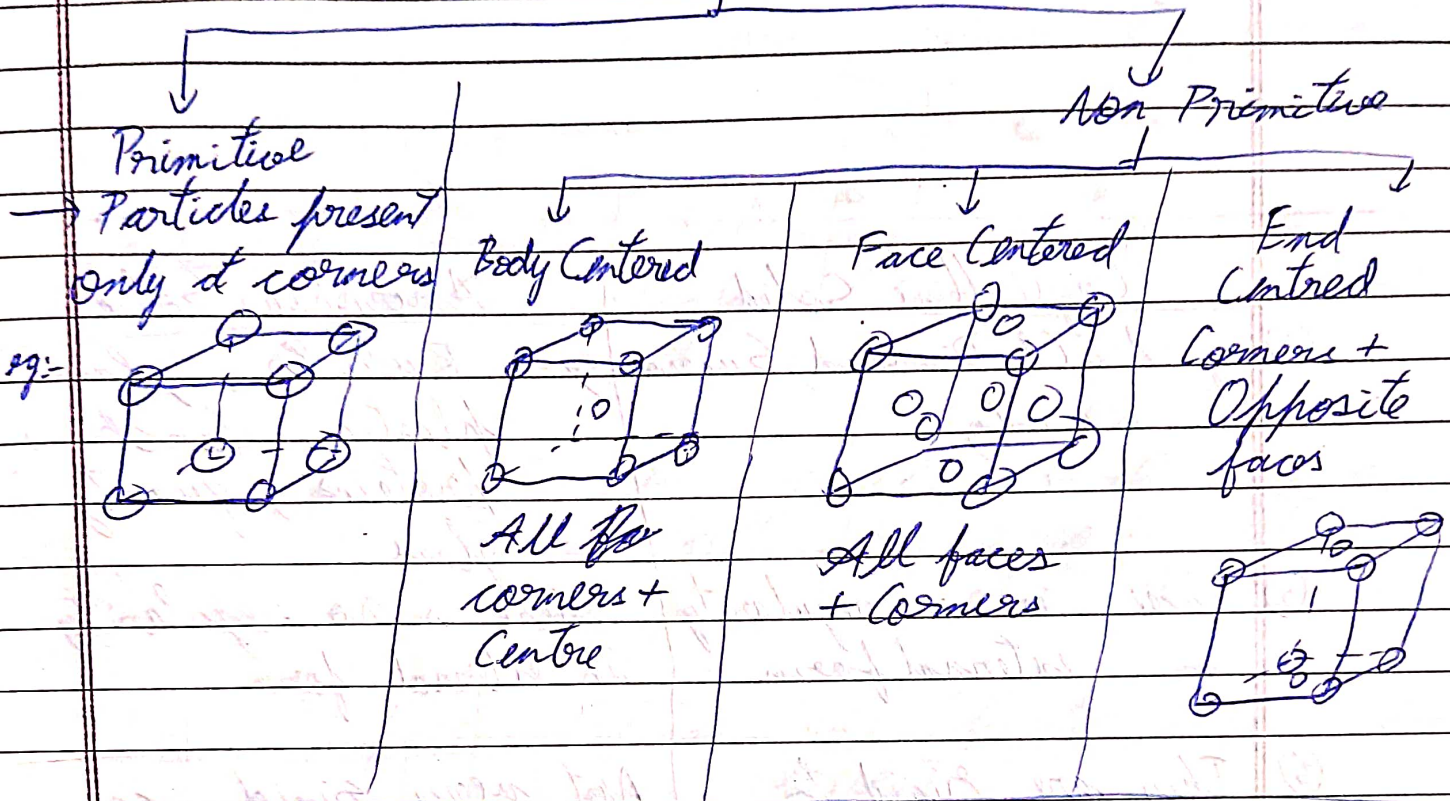 Non Primitive
Primitive
→ Particles present
only at corners
eg:-
Body Centered
All
corners +
Centre
Face Centered
All faces
+ Corners
End
Centred
Corners +
Opposite
faces